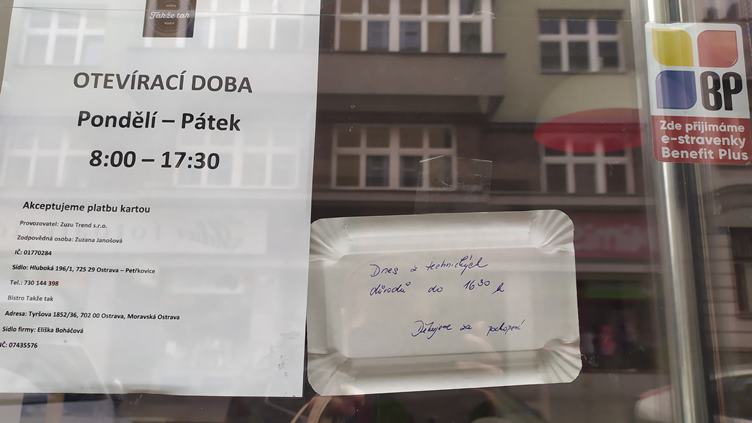 Takže tak
OTEVÍRACÍ DOBA
Pondělí – Pátek
8:00 – 17:30
Akceptujeme platbu kartou
Provozovatel: Zuzu Trend s.r.o.
Zodpovědná osoba: Zuzana Janošová
IČ: 01770284
Sídlo: Hluboká 196/1, 725 29 Ostrava – Petřkovice
Tel.: 730 144 398
Bistro Takže tak
Adresa: Tyršova 1852/36, 702 00 Ostrava, Moravská Ostrava
Sídlo firmy: Eliška Boháčová
IČ: 07435576
Dnes z technických
důvodů do 16 30 h
Děkujeme za pochopení
BP
Zde přijímáme
e-stravenky
Benefit Plus